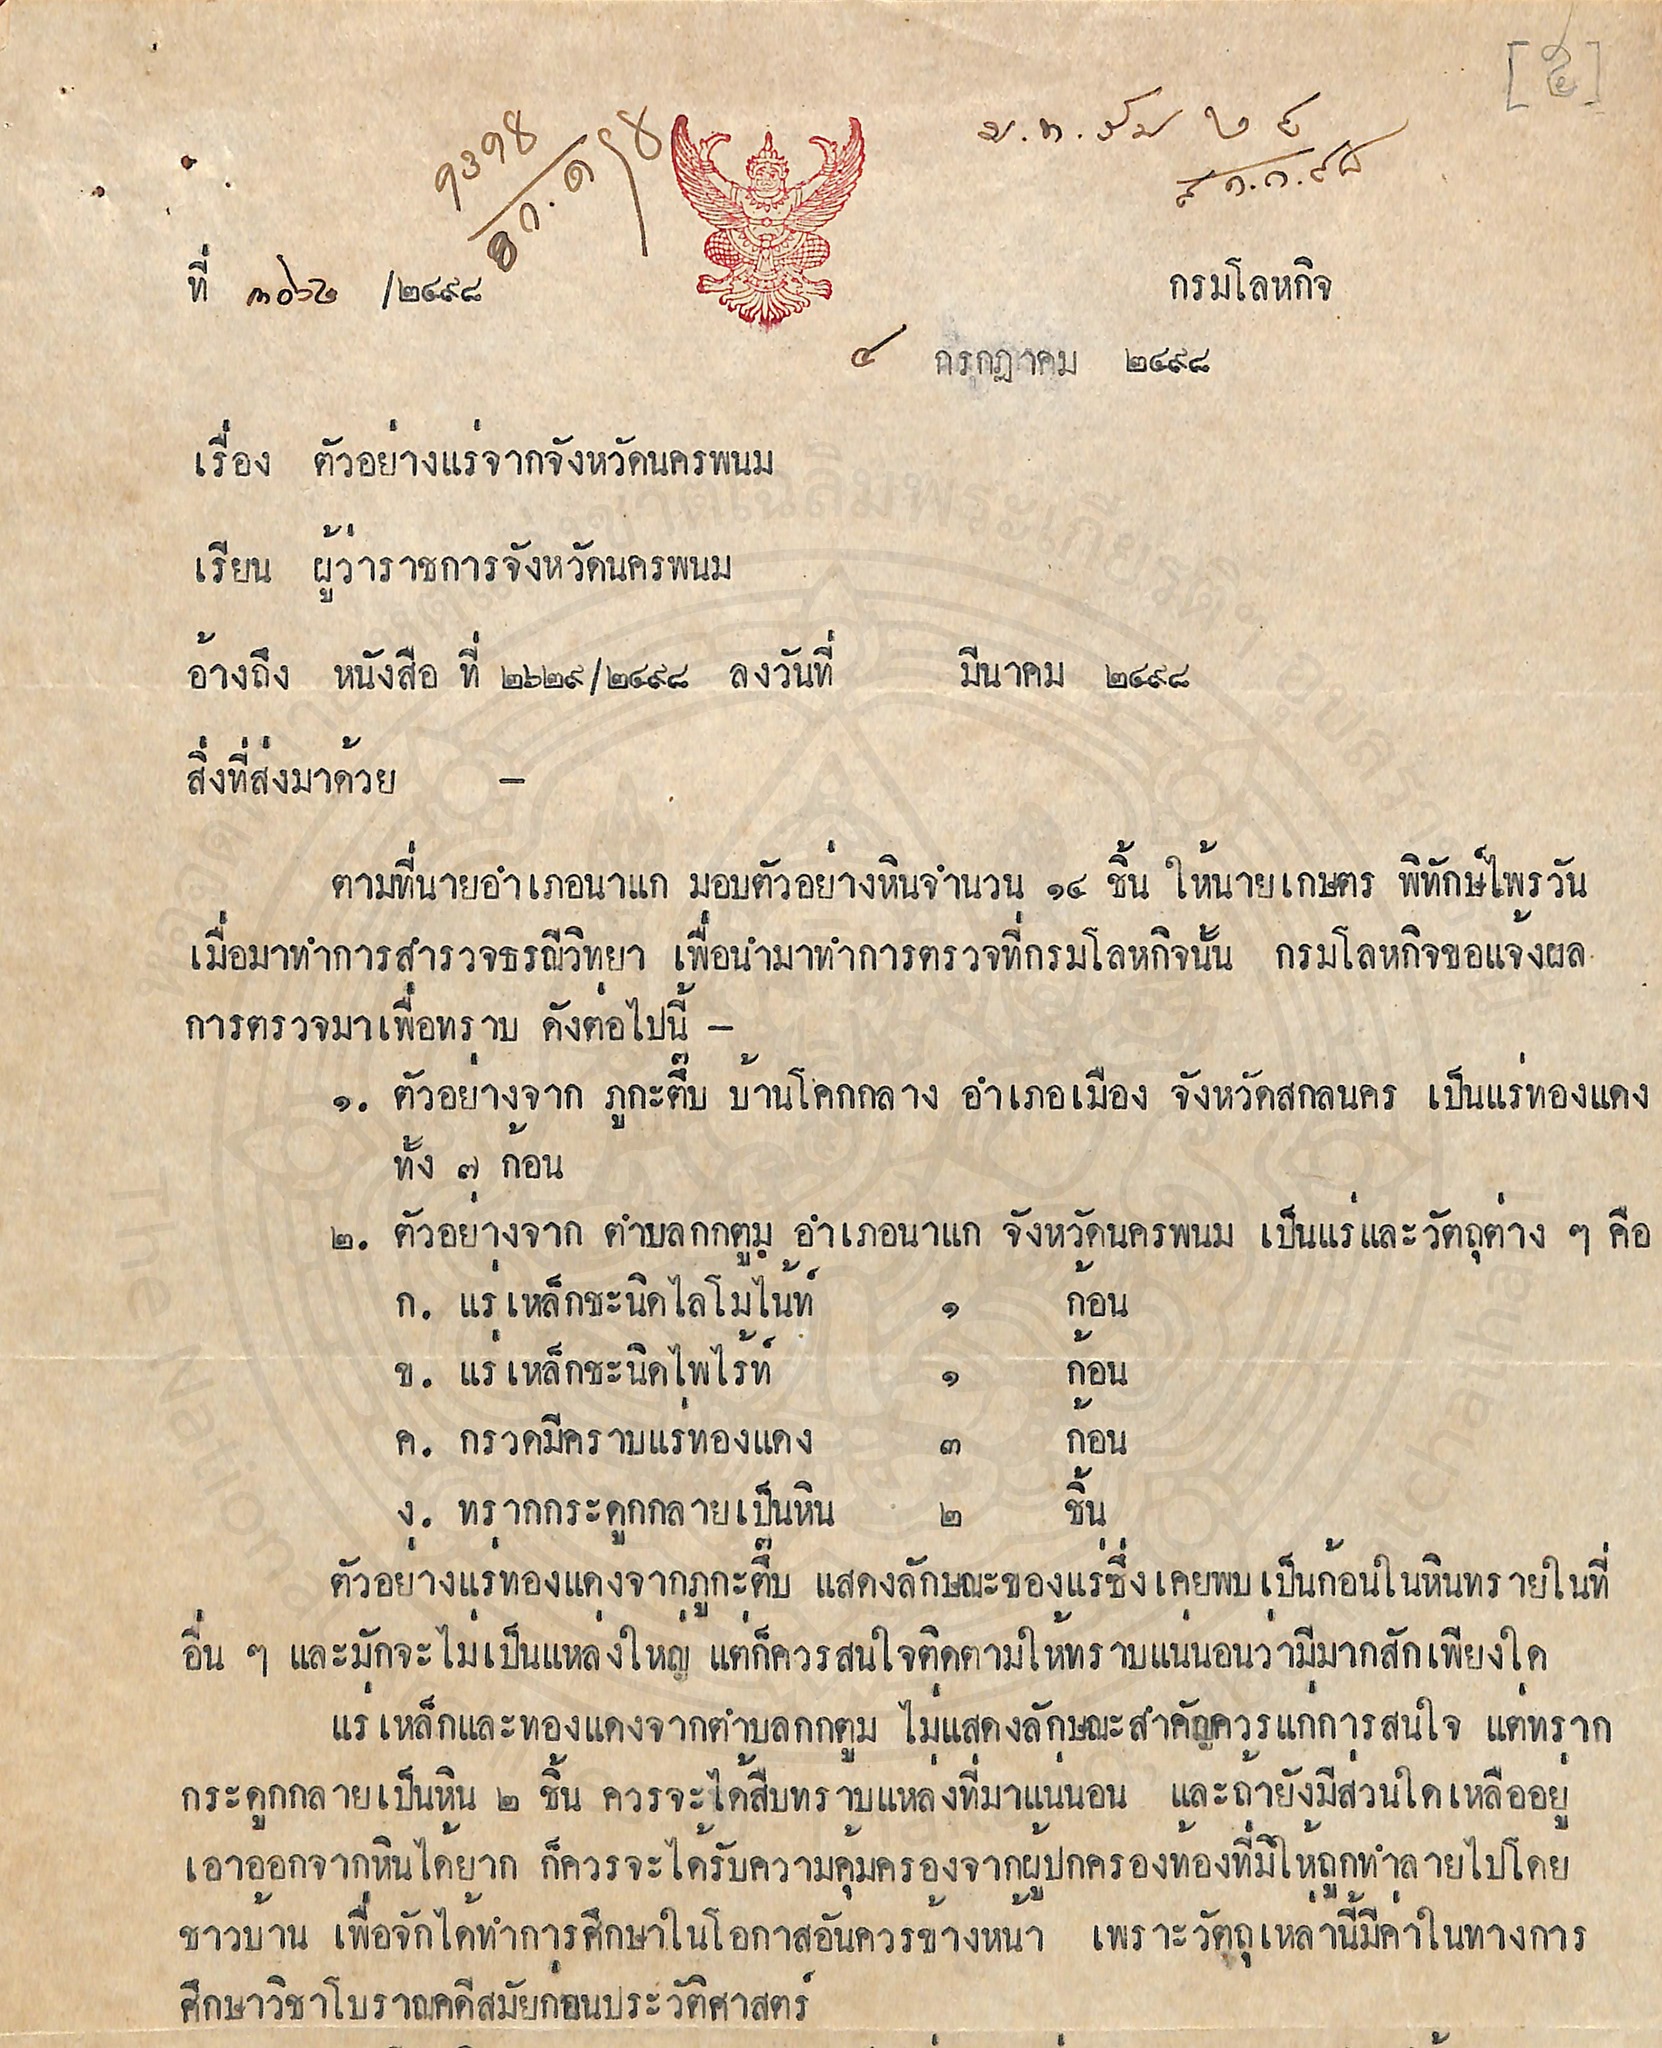 ที่ ๓๐๖๒ /๒๔๙๘
กรมโลหกิจ
๔ กรกฎาคม ๒๔๙๘
เรื่อง ตัวอย่างแร่จากจังหวัดนครพนม
เรียน ผู้ว่าราชการจังหวัดนครพนม
อ้างถึง หนังสือ ที่ ๒๖๒๙/๒๔๙๘ ลงวันที่ มีนาคม ๒๔๙๘
สิ่งที่ส่งมาด้วย –
ตามที่นายอำเภอนาแก มอบตัวอย่างหินจำนวน ๑๔ ชิ้น ให้นายเกษตร พิทักษ์ไพรวัน
เมื่อมาทำการสำรวจธรณีวิทยา เพื่อนำมาทำการตรวจที่กรมโลหกิจนั้น กรมโลหกิจขอแจ้งผล
การตรวจมาเพื่อทราบ ดังต่อไปนี้ –
๑. ตัวอย่างจาก ภูกะตึ๊บ บ้านโคกกลาง อำเภอเมือง จังหวัดสกลนคร เป็นแร่ทองแดง
ทั้ง ๗ ก้อน
๒. ตัวอย่างจาก ตำบลกกตูม อำเภอนาแก จังหวัดนครพนม เป็นแร่และวัตถุต่าง ๆ คือ
ก. แร่เหล็กชะนิดไลโมไน้ท์ ๑ ก้อน
ข. แร่เหล็กชะนิดไพไร้ท์ ๑ ก้อน
ค. กรวดมีคราบแร่ทองแดง ๓ ก้อน
ง. ทรากกระดูกกลายเป็นหิน ๒ ชิ้น
ตัวอย่างแร่ทองแดงจากภูกะตึ๊บ แสดงลักษณะของแร่ซึ่งเคยพบเป็นก้อนในหินทรายในที่
อื่น ๆ และมักจะไม่เป็นแหล่งใหญ่ แต่ก็ควรสนใจติดตามให้ทราบแน่นอนว่ามีมากสักเพียงใด
แร่เหล็กและทองแดงจากตำบลกกตูม ไม่แสดงลักษณะสำคัญควรแก่การสนใจ แต่ทราก
กระดูกกลายเป็นหิน ๒ ชิ้น ควรจะได้สืบทราบแหล่งที่มาแน่นอน และถ้ายังมีส่วนใดเหลืออยู่
เอาออกจากหินได้ยาก ก็ควรจะได้รับความคุ้มครองจากผู้ปกครองท้องที่มิให้ถูกทำลายไปโดย
ชาวบ้าน เพื่อจักได้ทำการศึกษาในโอกาสอันควรข้างหน้า เพราะวัตถุเหล่านี้มีค่าในทางการ
ศึกษาวิชาโบราณคดีสมัยก่อนประวัติศาสตร์